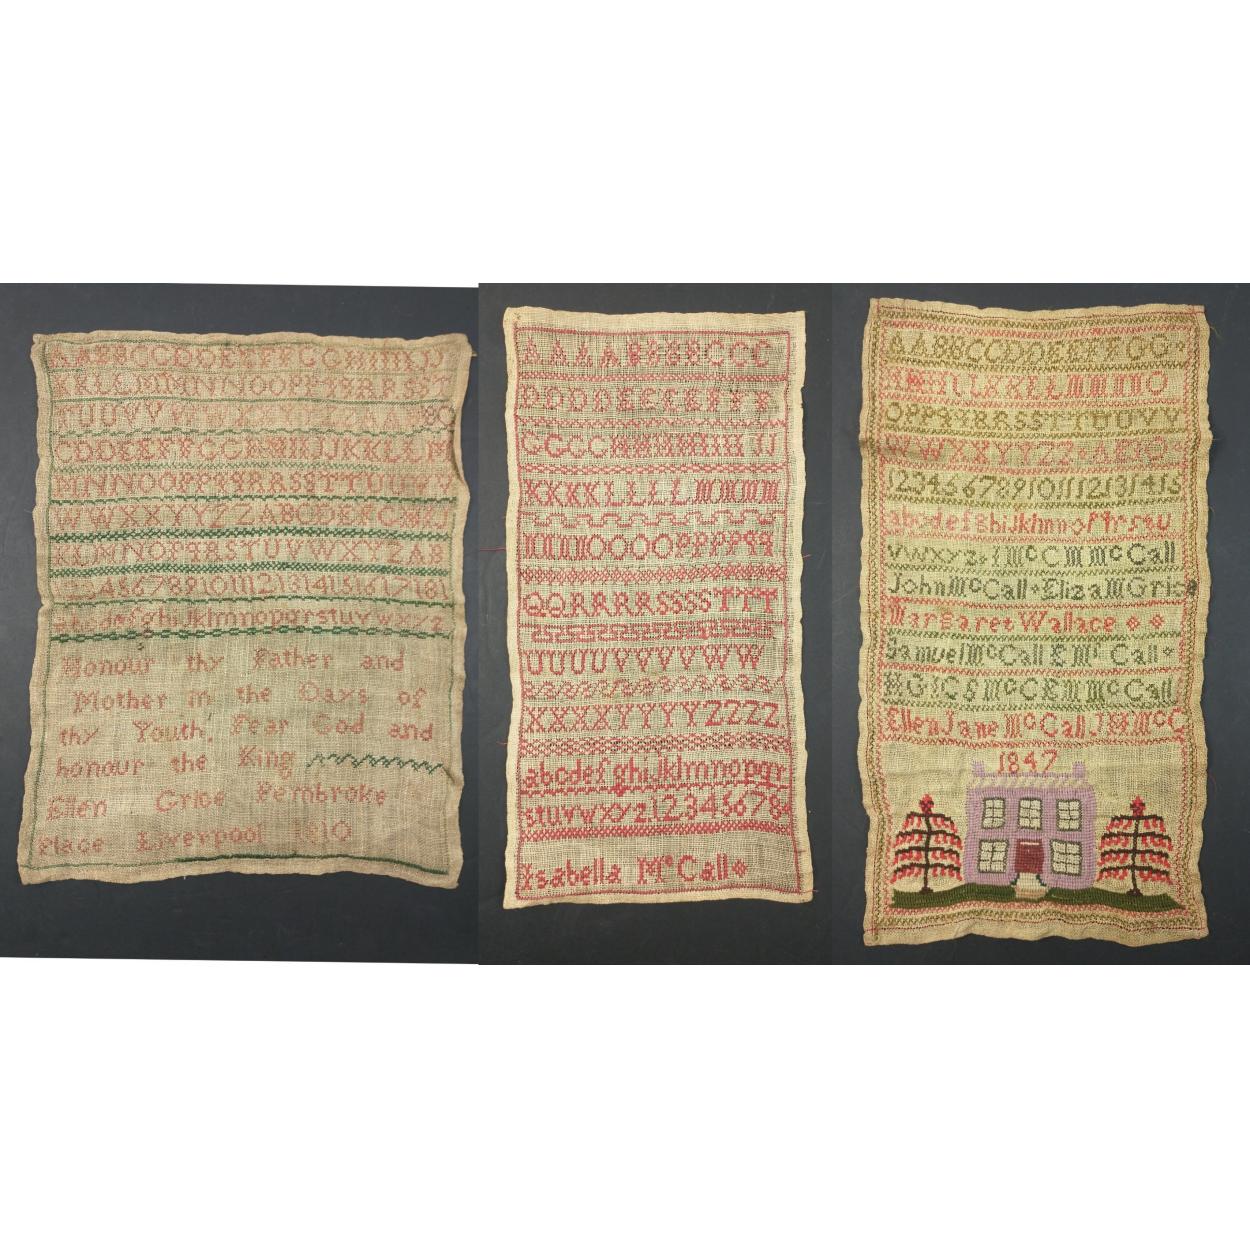 AABBCCDDEEFFGGHHIIJJ
KKLLMMNNOOPPqqRRSST
TUUVVWWXXYYZZ
CDDEEFFGGHHIIJJKKLLM
MNNOOPPqqRRSSTTUUVV
WWXXYYZZABCDEFGHIJ
KLMNOPqRSTUVWXYZAB
123456789101112131415161718
abcdefghiJklmnopqrstuvwxyz
Honour thy Father and
Mother in the Days of
thy Youth, Fear God and
honour the King
Ellen Grice Pembroke
Place Liverpool 1810
AAAABBBBCCC
DDDDEEEEFFFF
GGGGHHHHIIIIJJ
KKKKLLLLMMMM
NNNNOOOOPPPPqq
QQRRRRSSSSTTT
UUUUVVVVWW
XXXXYYYYZZZZ
abcdefghiJklmnopqr
stuvwxyz12345678
Isabella McCall
AABBCCDDEEFFGG
KKLLMMNNO
OPPqqRRSSTTUUVV
WWXXYYZZ
123456789101112131415
abcdefghiJklmnopqrstu
vwxyz
JohnMcCall ElizaMGrice
Margaret Wallace
SamuelMcCall & McCall
McCall
EllenJane McCall
1847